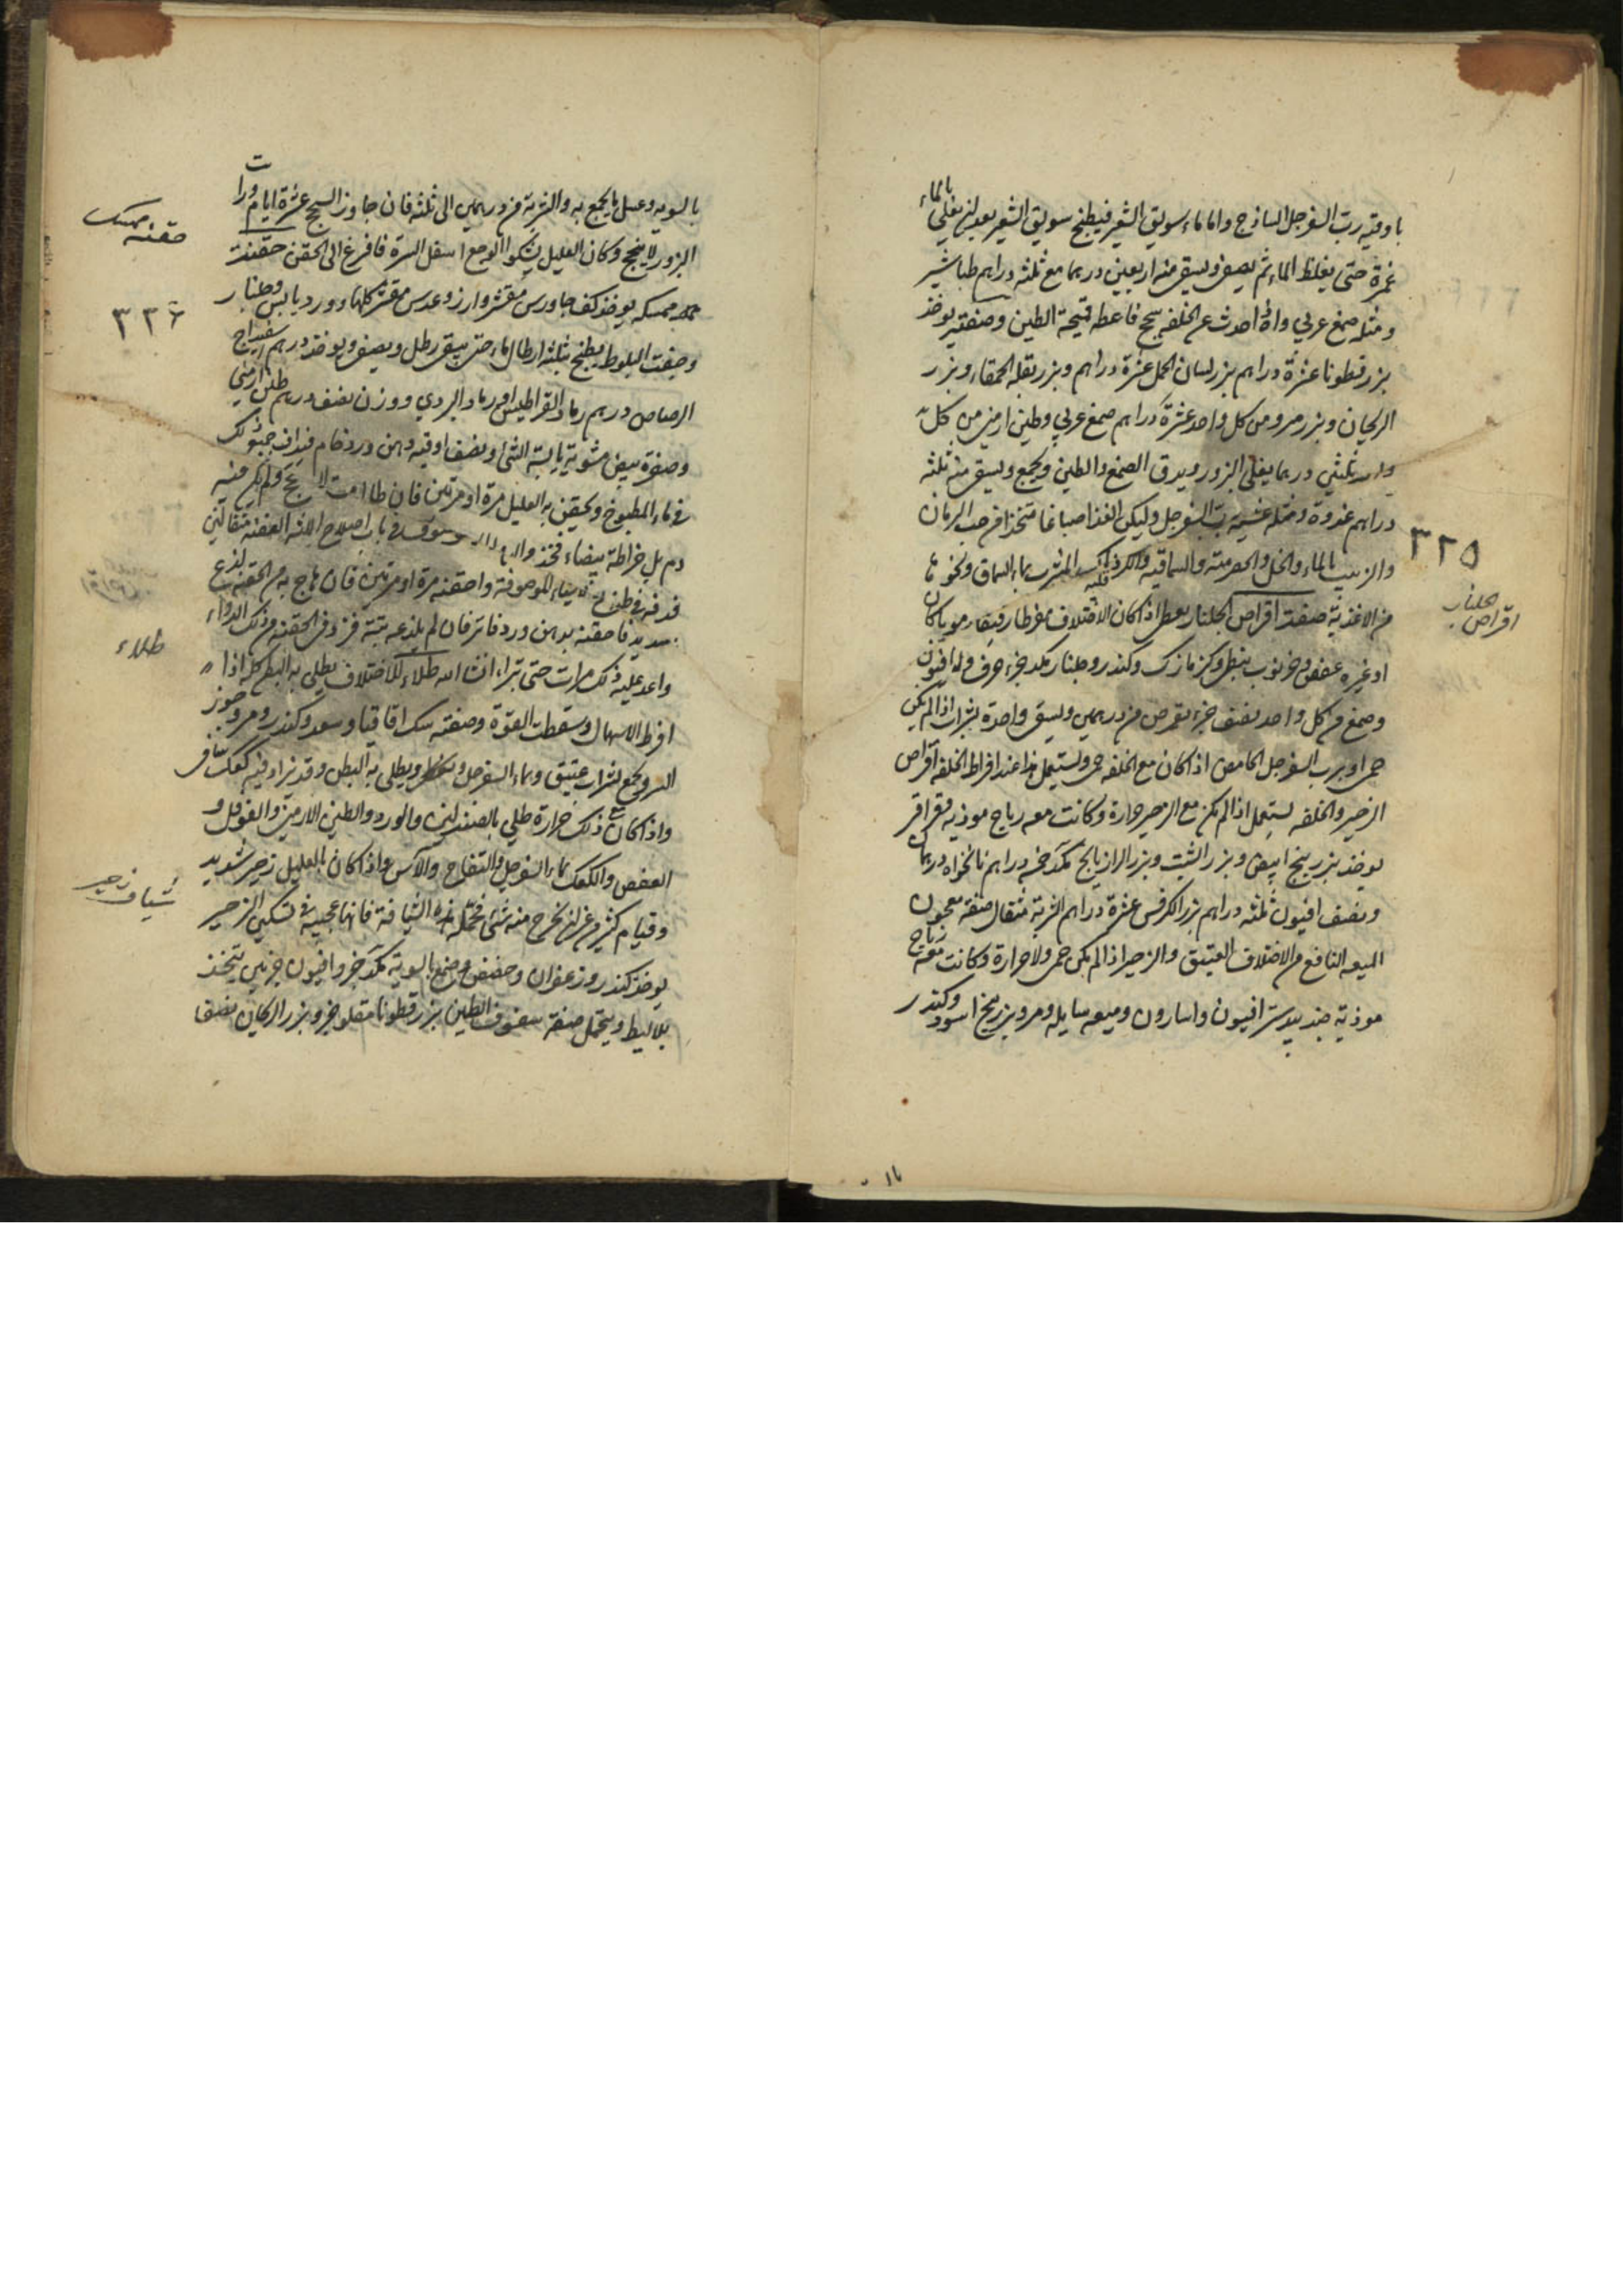 باوقية رب السفرجل الساذج واما ماء سويق الشعير فيطبخ سويق الشعير بعد ان يغلي بالماء
غمرة حتى يغلظ الماء ثم يصفى ويسقى منه اربعين درهما مع ثلثه دراهم طباشير
ومثله صمغ عربي واذا احدث عن الخلفه سحج فاعطه قميحة الطين وصفته يوخذ
بزر قطونا عشرة دراهم بزر لسان الحمل عشرة دراهم وبزر بقله الحمقاء وبزر
الريحان وبزر مرو من كل واحد عشرة دراهم صمغ عربي وطين ارمني من كل
واحد ثلثين درهما يغلى البزور ويدق الصمغ والطين ويجمع ويسقى منه ثلثه
دراهم غدوة ومثله عشيه برب السفرجل وليكن الغذا صباغا متخذا من حب الرمان
والزبيب بالماء والخل والحصرميه والسماقيه والكردناك المشرب بماء السماق ونحوها
من الاغذية صفت اقراص الجلنار يعطى اذا كان الاختلاف مفرطا رقيقا دمويا كان
او غيره عفص وخرنوب نبطي وكزمازك وكندر وجلنار مكد جزء وافيون
وصمغ من كل واحد نصف جزء يقرص من درهمين ويسقى واحدة بشراب اذا لم يكن
حمى او برب السفرجل الحامض اذا كان مع الخلفه حمى ويستعمل هذا عند افراط الخلفه اقراص
الزحير والخلفه يستعمل اذا لم يكن مع الزحير حرارة وكانت معه رياح موذيه وقراقر
يوخذ بزر بنج ابيض وبزر الشبت وبزر الرازيانج مكد خمسه دراهم نانخواه درهمان
ونصف افيون ثلثه دراهم بزر الكرفس عشرة دراهم الشربة مثقال صفة معجون
الميعه النافع من الاختلاف العتيق والزحير اذا لم يكن حمى ولا حرارة وكانت معه رياح
موذية جندبيدستر افيون واسارون وميعه سايله ومر وبزر بنج اسود وكندر
٣٢٥
اقراص جلنار
بالسويه وعسل ما يجمع به والشربة من درهمين الى ثلثه فان جاوز السحج عشرة ايام ورات
البزور لا ينجح وكان العليل يشكوا الوجع اسفل السرة فافزع الى الحقن حقنت
ممسكه يوخذ كف جاورس مقشر وارز وعدس مقشر كلها وورد يابس وجلنار
وجفت البلوط يطبخ بثلثه ارطال ماء حتى يبقى رطل ويصفى ويوخذ درهم اسفيداج
الرصاص درهم رماد القراطيس او رماد البردي ووزن نصف درهم طين ارمني
وصفرة بيض مشوية يابسة الشئ ونصف اوقيه دهن ورد خام فيداف جميع ذلك
في ماء المطبوخ ويحقن به العليل مرة او مرتين فان طالت لا نجح ولم يكن منه
دم بل خراطة بيضاء فخذ في باب اصلاح اللثه العفنه مثقالين
فدفه في طبيخ الموصوفة واحقنه مرة او مرتين فان هاج به من الحقنه لذع
شديد فاحقنه بدهن ورد فاتر فان لم يلذعه بتة فزد في الحقنه من ذلك الدواء
واعد عليه ذلك مرات حتى تبرا انشا الله طلاء للاختلاف يطلى به البطن كله اذا
افرط الاسهال وسقطت القوة وصفته سك اقاقيا وسعد وكندر ومر وجوز
السرو يجمع بشراب عتيق وماء السفرجل ويطلى به البطن وقد يزاد فيه كعك
واذا كان مع ذلك حرارة طلي بالصندلين والورد والطين الارمني والفوفل و
العفص والكعك بماء السفرجل والتفاح والاس واذا كان بالعليل زحير شديد
وقيام كثير من غير ان يخرج منه شئ فحمله هذه الشيافة فانها عجيبه في تسكين الزحير
يوخذ كندر وزعفران وحضض وصمغ بالسوية مكد جزء وافيون جزئين يتخذ
بلاليط ويتحمل صفة سفوف الطين بزر قطونا مقلو جزء وبزر الريحان نصف
حقنه ممسك
٣٢٦
طلاء
شياف زحير